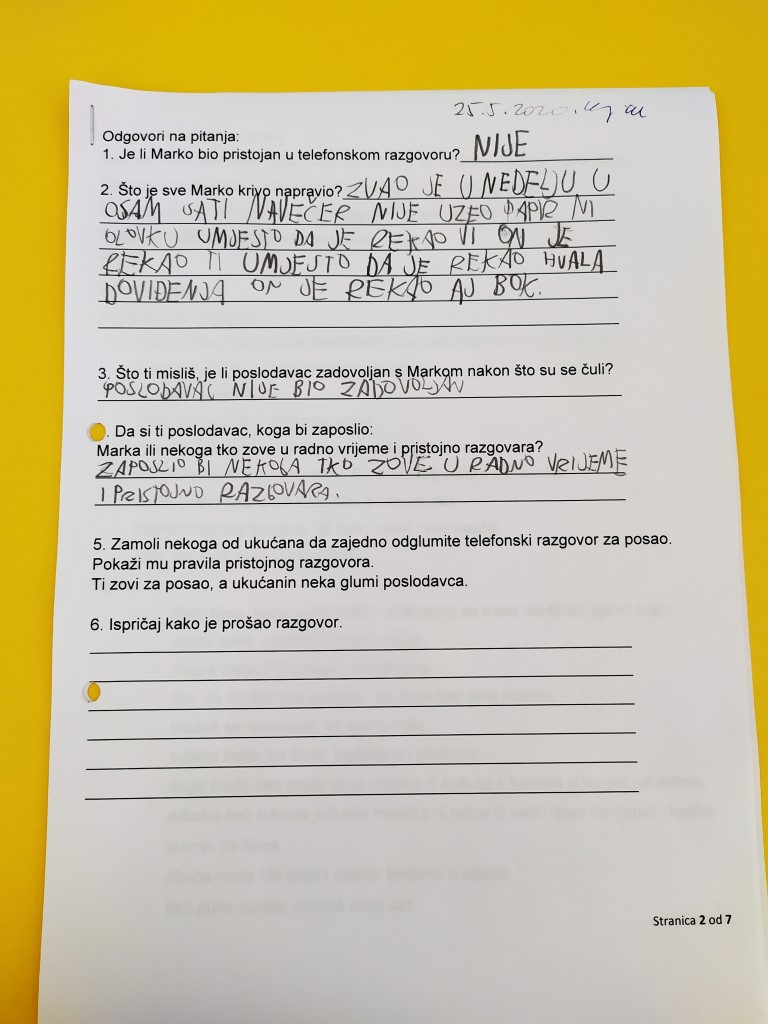 25.5.2020.
Odgovori na pitanja:
1. Je li Marko bio pristojan u telefonskom razgovoru? NIJE
2. Što je sve Marko krivo napravio? ZVAO JE U NEDELJU U
OSAM SATI NAVEČER NIJE UZEO PAPIR NI
OLOVKU UMJESTO DA JE REKAO VI ON JE
REKAO TI UMJESTO DA JE REKAO HVALA
DOVIĐENJA ON JE REKAO AJ BOK.
3. Što ti misliš, je li poslodavac zadovoljan s Markom nakon što su se čuli?
POSLODAVAC NIJE BIO ZADOVOLJAN
. Da si ti poslodavac, koga bi zaposlio:
Marka ili nekoga tko zove u radno vrijeme i pristojno razgovara?
ZAPOSLIO BI NEKOGA TKO ZOVE U RADNO VRIJEME
I PRISTOJNO RAZGOVARA.
5. Zamoli nekoga od ukućana da zajedno odglumite telefonski razgovor za posao.
Pokaži mu pravila pristojnog razgovora.
Ti zovi za posao, a ukućanin neka glumi poslodavca.
6. Ispričaj kako je prošao razgovor.
Stranica 2 od 7